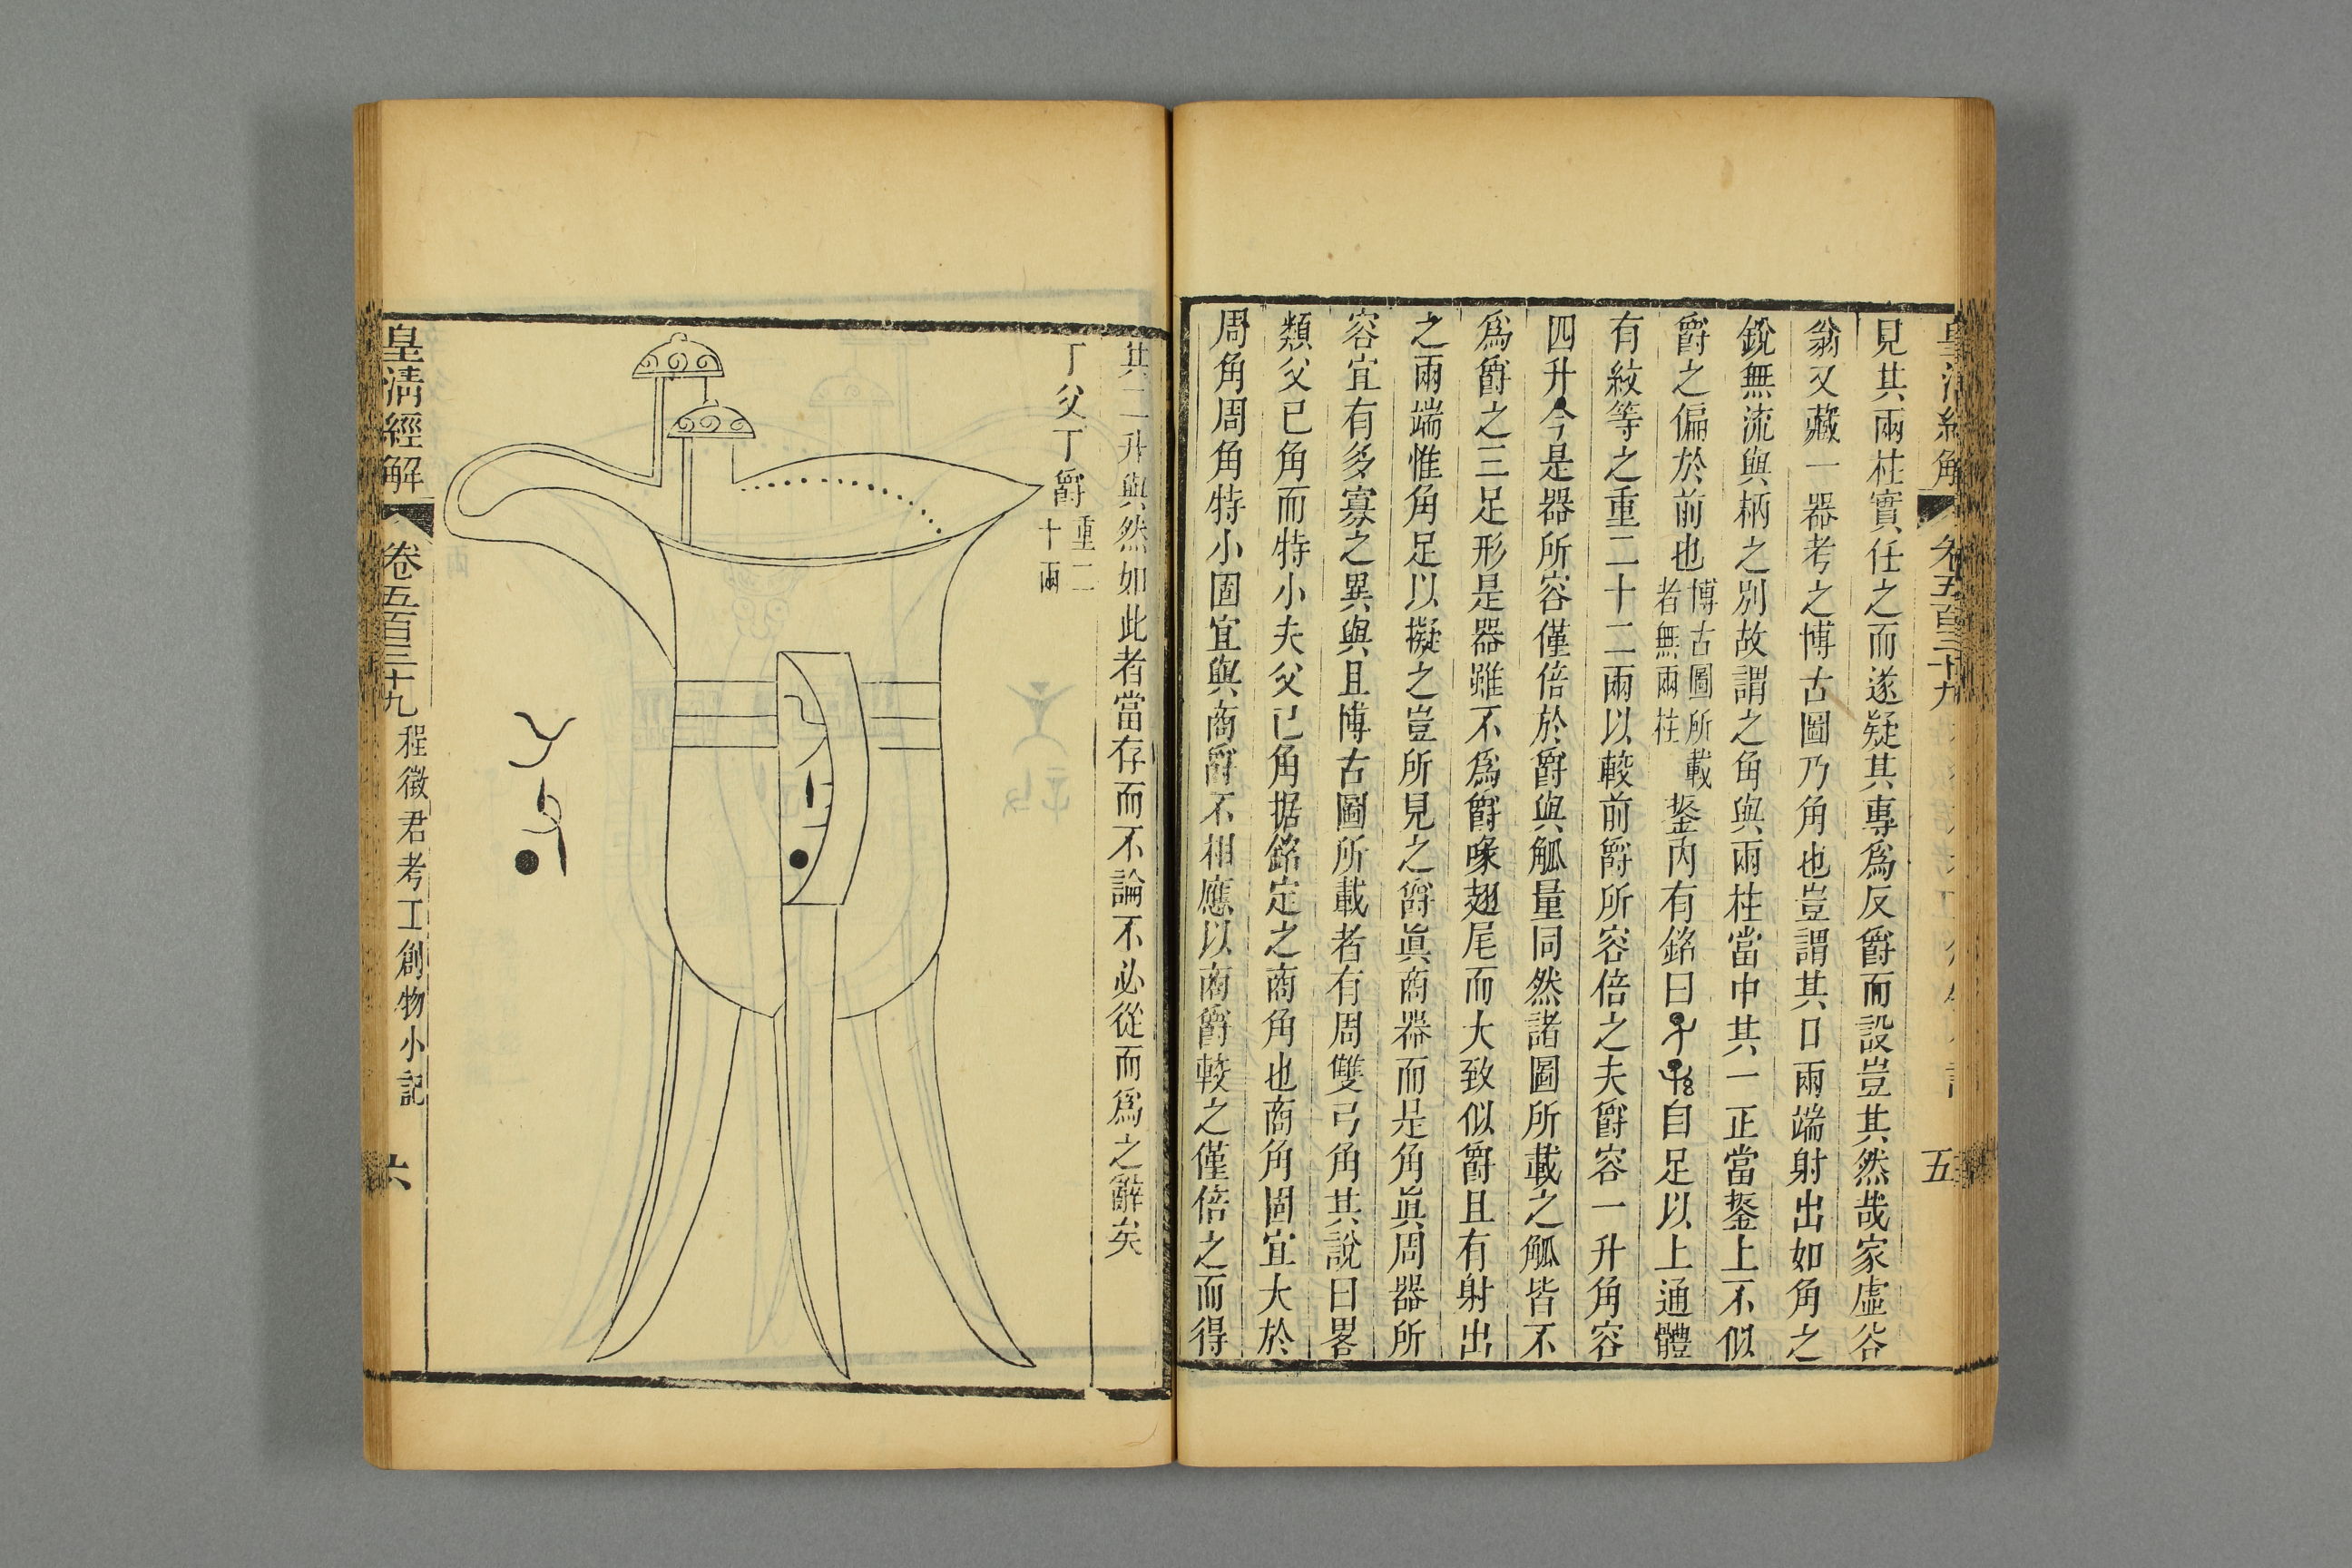 五
見其兩柱實任之而遂疑其專爲反爵而設豈其然哉家虛谷
翁又藏一器考之博古圖乃角也豈謂其口兩端射出如角之
銳無流與柄之別故謂之角與兩柱當中其一正當鋬上不似
爵之偏於前也博古圖所載者無兩柱鋬內有銘曰自足以上通體
有紋等之重二十二兩以較前爵所容倍之夫爵容一升角容
四升今是器所容僅倍於爵與觚量同然諸圖所載之觚皆不
爲爵之三足形是器雖不爲爵喙翅尾而大致似爵且有射出
之兩端惟角足以擬之豈所見之爵眞商器而是角眞周器所
容宜有多寡之異與且博古圖所載者有周雙弓角其說曰畧
類父已角而特小夫父已角据銘定之商角也商角固宜大於
周角周角特小固宜與商爵不相應以商爵較之僅倍之而得
其二升與然如此者當存而不論不必從而爲之辭矣
丁父丁爵重二十兩
皇清經解
卷五百三十九
程徵君考工創物小記
六